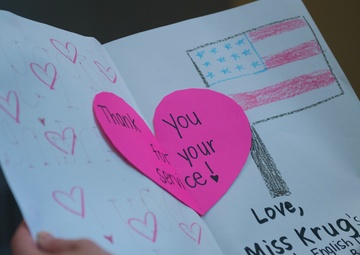 Thank you
for your
service!
Love,
Miss Krug's
English